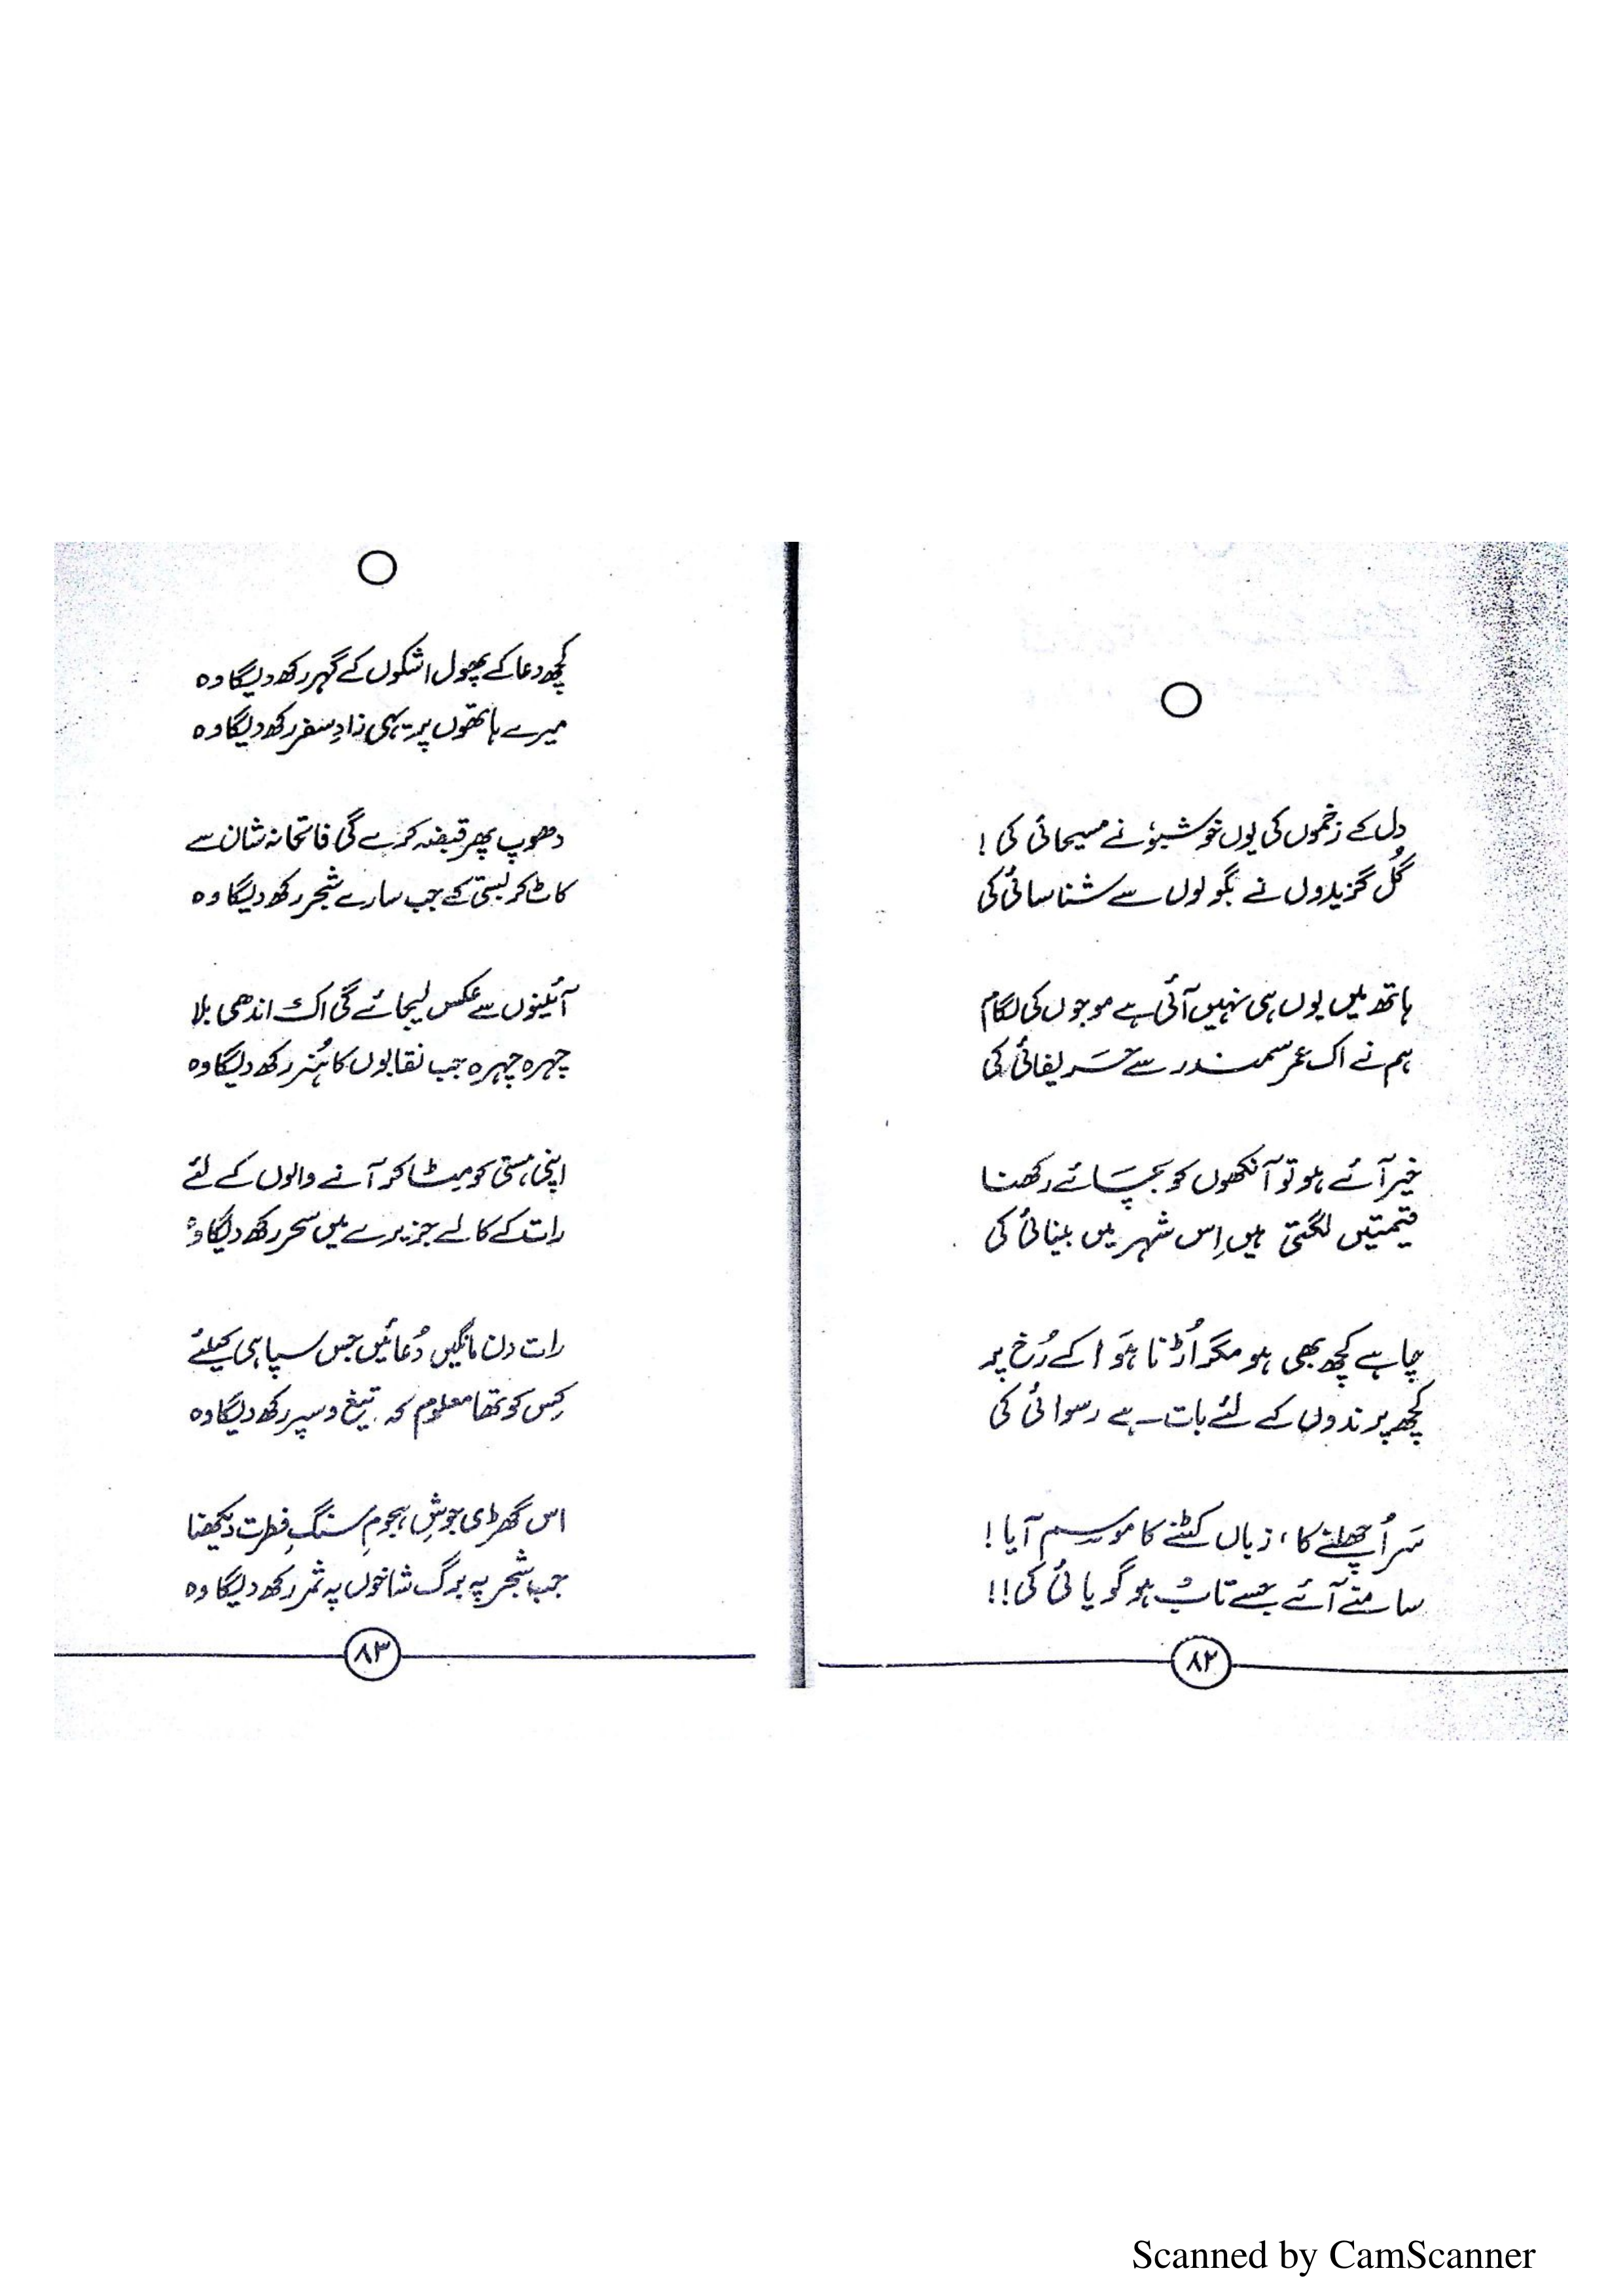 دل کے زخموں کی یوں خوشبوٗ نے مسیحائی کی !
گُل گزیدوں نے بگولوں سے شناسائی کی
ہاتھ میں یوں ہی نہیں آئی ہے موجوں کی لگام
ہم نے اک عمر سمندر سے حَریفائی کی
خیر آئے ہو تو آنکھوں کو بچَائے رکھنا
قیمتیں لگتی ہیں اِس شہر میں بینائی کی
چاہے کچھ بھی ہو مگر اُڑنا ہَوا کے رُخ پر
کچھ پرندوں کے لئے بات ہے رسوائی کی
سَر اُچھلنے کا ، زباں کٹنے کا موسم آیا !
سامنے آئے جسے تاب ہو گویائی کی !!
۸۲
کچھ دعا کے پھول اشکوں کے گہر رکھ دیگا وہ
میرے ہاتھوں پر یہی زادِ سفر رکھ دیگا وہ
دھوپ پھر قبضہ کرے گی فاتحانہ شان سے
کاٹ کر بستی کے جب سارے شجر رکھ دیگا وہ
آئینوں سے عکس لیجائے گی اک اندھی بلا
چہرہ چہرہ جب نقابوں کا ہُنر رکھ دیگا وہ
اپنی ہستی کو مِٹا کر آنے والوں کے لئے
رات کے کالے جزیرے میں سحر رکھ دیگا وہ
رات دن مانگیں دُعائیں جس سپاہی کیلئے
کِس کو تھا معلوم کہ تیغ و سپر رکھ دیگا وہ
اس گھڑی جوشِ ہجومِ سنگِ فِطرت دیکھنا
جب شجر پہ برگ شاخوں پہ ثمر رکھ دیگا وہ
۸۳
Scanned by CamScanner